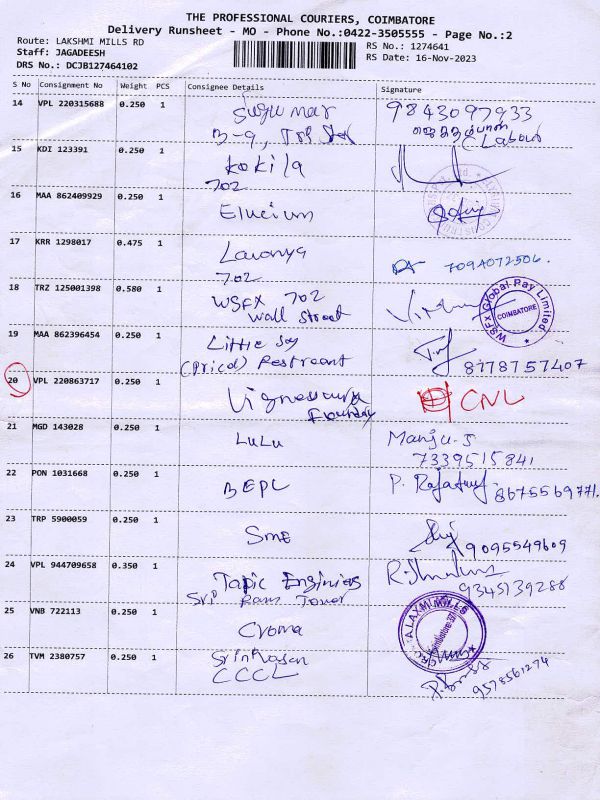 THE PROFESSIONAL COURIERS, COIMBATORE
Delivery Runsheet - MO - Phone No.:0422-3505555 - Page No.:2
Route: LAKSHMI MILLS RD
RS No.: 1274641
Staff: JAGADEESH
RS Date: 16-Nov-2023
DRS No.: DCJB127464102
S No Consignment No Weight PCS Consignee Details Signature
14 VPL 220315688 0.250 1 Sugumar 9843097933
B-9, Labour
15 KDI 123391 0.250 1 Kokila
702
16 MAA 862409929 0.250 1 Elucium
17 KRR 1298017 0.475 1 Lavanya 7094072506.
702
18 TRZ 125001398 0.580 1 WSFX 702
Wall Street
WSFx Global Pay Limited
COIMBATORE
19 MAA 862396454 0.250 1 Little Joy
(Pricol) Restreant 8778757407
20 VPL 220863717 0.250 1 CNL
21 MGD 143028 0.250 1 LuLu Manju.S
7339515841
22 PON 1031668 0.250 1 BEPL P. 8675569771.
23 TRP 5900059 0.250 1 SME 9095549609
24 VPL 944709658 0.350 1 Tapic Enginies
Sri Ram Tower 9345139288
25 VNB 722113 0.250 1 Croma
LAXMI MILLS
Coimbatore 37
26 TVM 2380757 0.250 1 Srinivasan
CCCL 9578561274